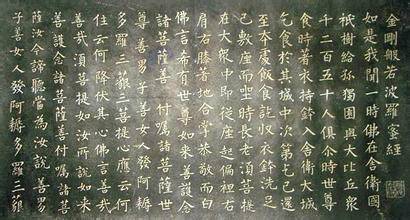 金剛般若波羅蜜經
如是我聞一時佛在舍衛國
祇樹給孤獨園與大比丘衆
千二百五十人俱尒時世尊
食時著衣持鉢入舍衛大城
乞食於其城中次第乞已還
至本處飯食訖収衣鉢洗足
已敷座而坐時長老須菩提
在大衆中即從座起偏袒右
肩右膝著地合掌恭敬而白
佛言希有世尊如來善護念
諸菩薩善付囑諸菩薩世
尊善男子善女人發阿耨
多羅三藐三菩提心應云何
住云何降伏其心佛言善哉
善哉須菩提如汝所說如來
善護念諸菩薩善付囑諸菩
薩汝今諦聽當為汝說善男
子善女人發阿耨多羅三藐